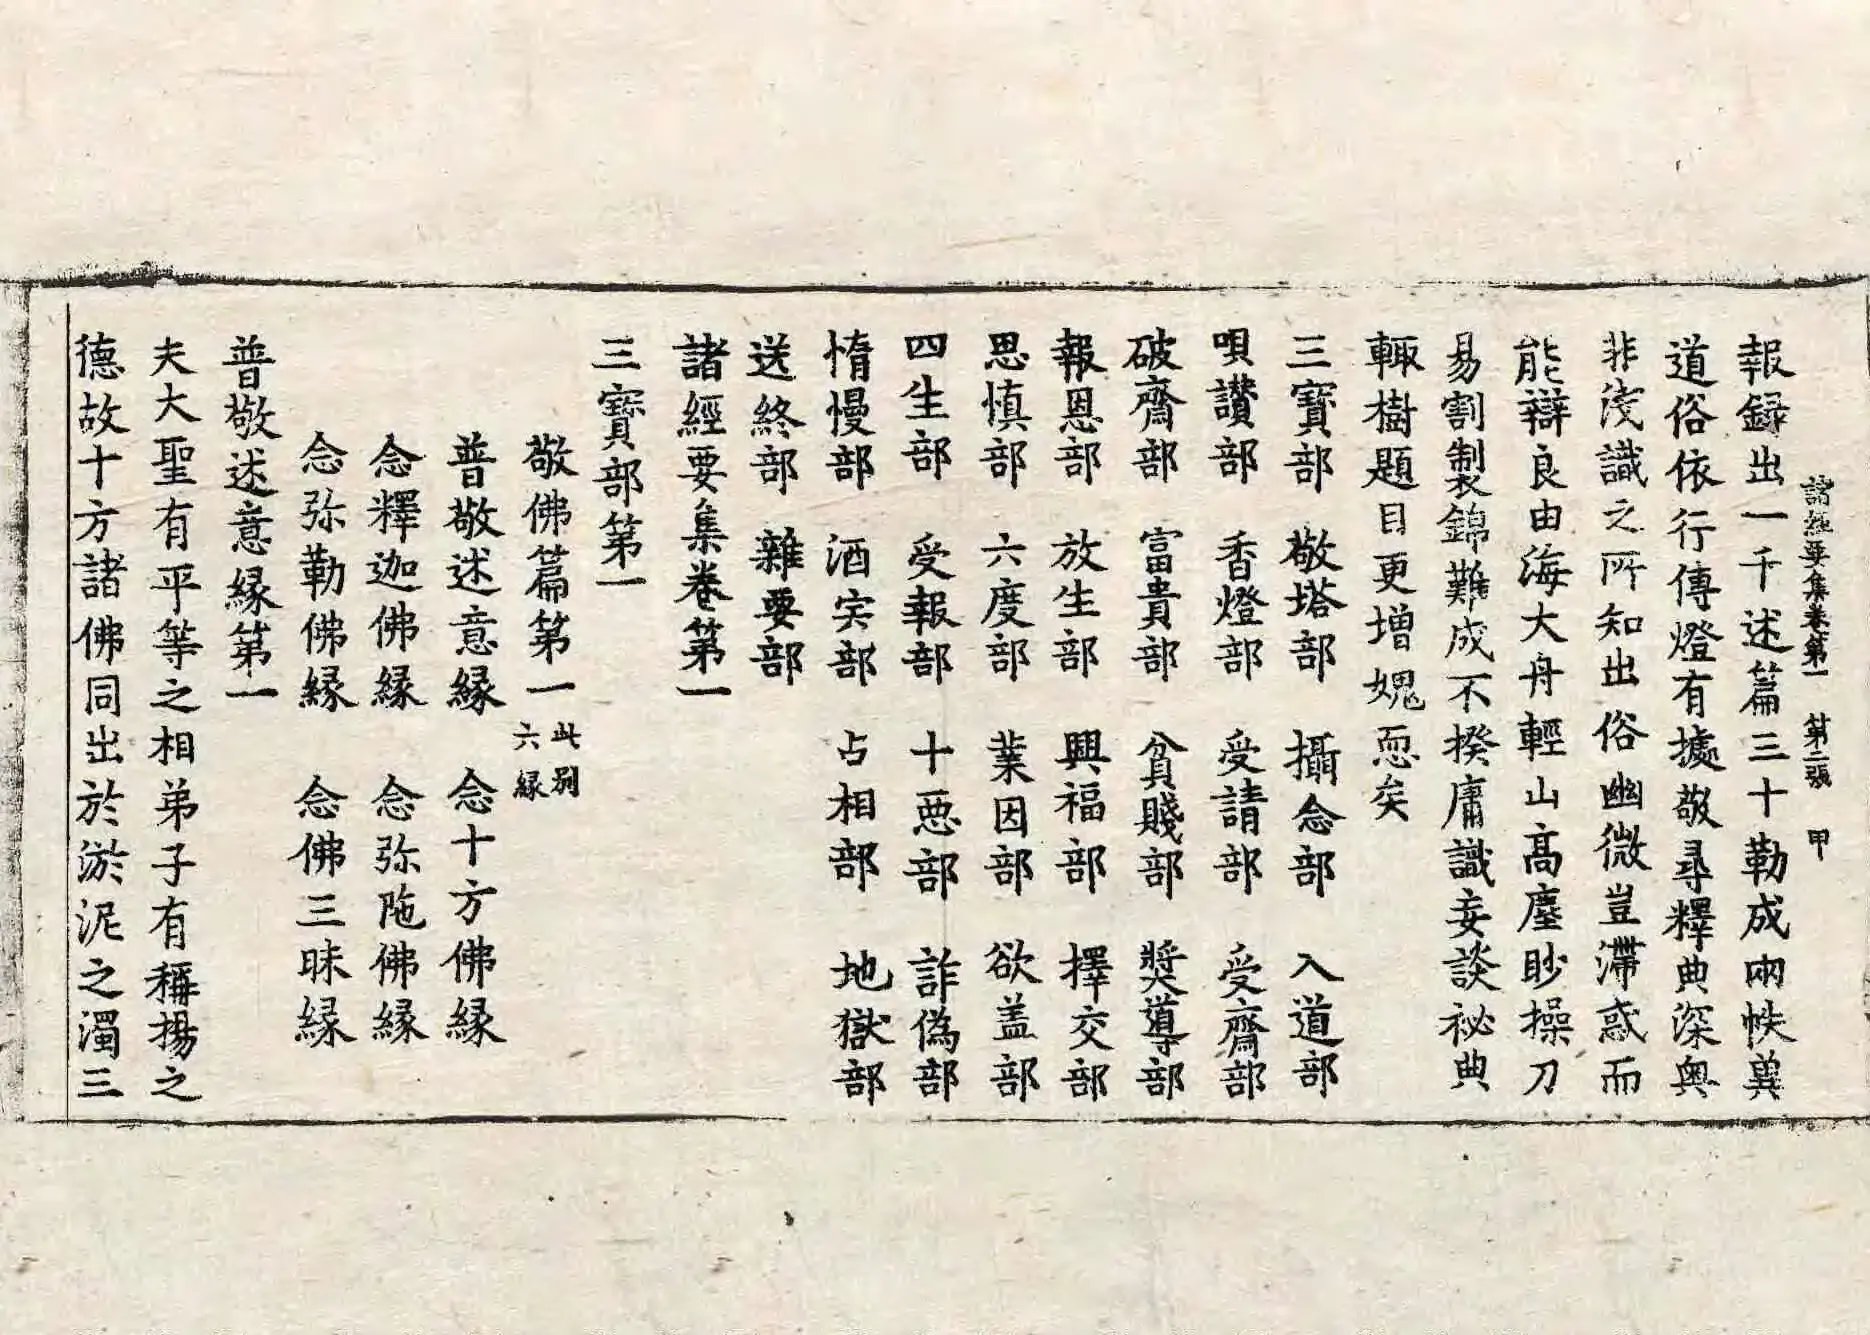 諸經要集卷第一 第二張 甲
報録出一千述篇三十勒成兩帙冀
道俗依行傳燈有據敬尋釋典深奥
非淺識之所知出俗幽微豈滯惑而
能辯良由海大舟輕山高塵眇操刀
易割製錦難成不揆庸識妄談祕典
輙樹題目更增媿恧矣
三寶部 敬塔部 攝念部 入道部
唄讃部 香燈部 受請部 受齋部
破齋部 富貴部 貧賤部 奬導部
報恩部 放生部 興福部 擇交部
思慎部 六度部 業因部 欲盖部
四生部 受報部 十惡部 詐偽部
惰慢部 酒宍部 占相部 地獄部
送終部 雜要部
諸經要集卷第一
三寶部第一
敬佛篇第一 此別六縁
普敬述意縁 念十方佛縁
念釋迦佛縁 念弥陁佛縁
念弥勒佛縁 念佛三昧縁
普敬述意縁第一
夫大聖有平等之相弟子有稱揚之
德故十方諸佛同出於淤泥之濁三